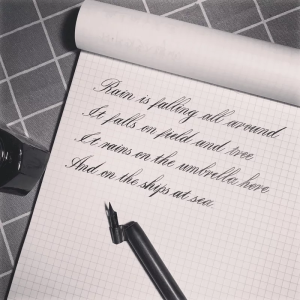 Rain is falling all around
It falls on field and tree
It rains on the umbrella here
And on the ships at sea.